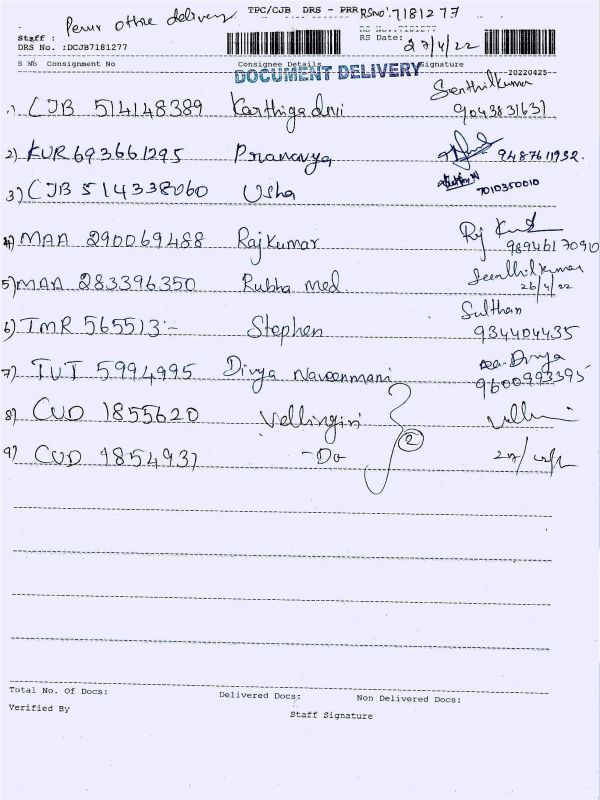 Perur office delivery TPC/CJB DRS - PRR RSno: 7181277
Staff :
DRS No. :DCJB7181277 RS Date: 27/4/22
S No Consignment No Consignee Details Signature
DOCUMENT DELIVERY -20220425-
1) CJB 514148389 Karthigadevi Senthilkumar 9043831631
2) KUR 693661295 Pranavya 9487611932.
3) CJB 514338060 Usha 7010350010
4) MAA 290069488 Rajkumar 9894617090
5) MAA 283396350 Rubha med. Senthilkumar 26/4/22
6) TMR 565513 :- Stephen Sulthan 934404435
7) TUT 5994995 Divya Naveenmani Divya 9600993395
8) CUD 1855620 Vellingiri
9) CUD 1854937 -Do- 2
Total No. Of Docs: Delivered Docs: Non Delivered Docs:
Verified By Staff Signature